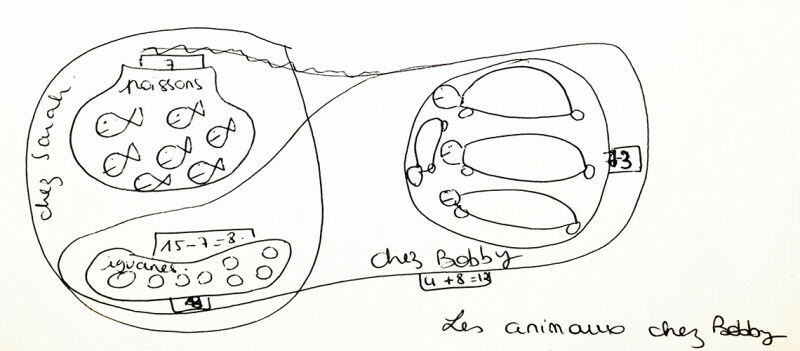 7
poissons
chez Sarah
15-7=8.
iguanes.
chez Bobby
4 + 8 = 12
Les animaux chez Bobby